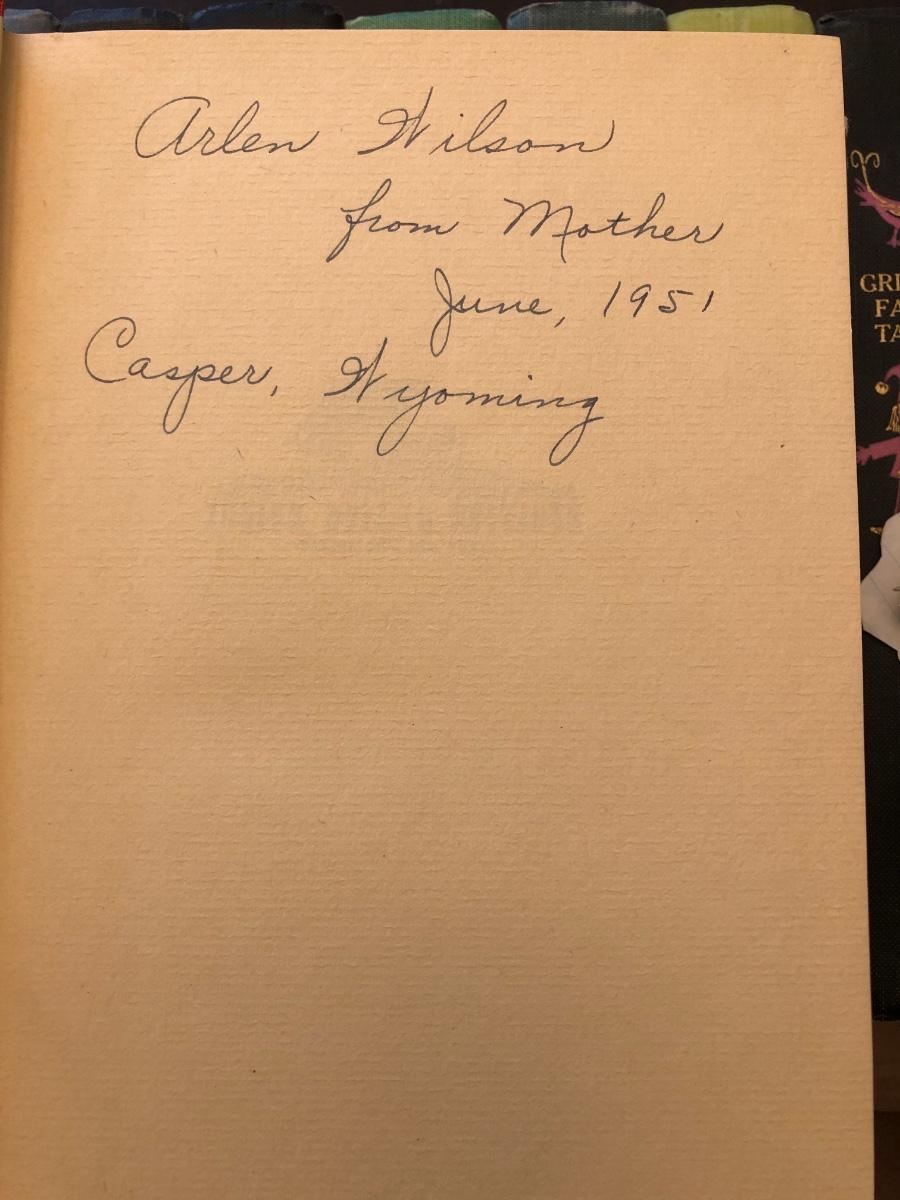 Arlen Wilson
from Mother
June, 1951
Casper, Wyoming
GRI
FA
TA